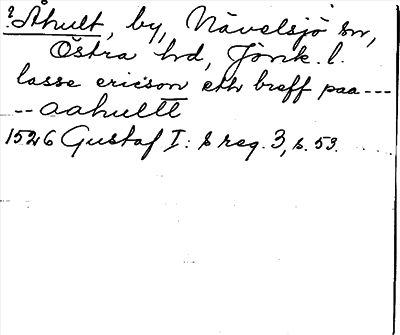 ? Åhult, by, Nävelsjö sn,
Östra hd, Jönk. l.
lasse ericson eth breff paa ---
-- aahultt
1526 Gustaf I: s reg. 3, s. 53.